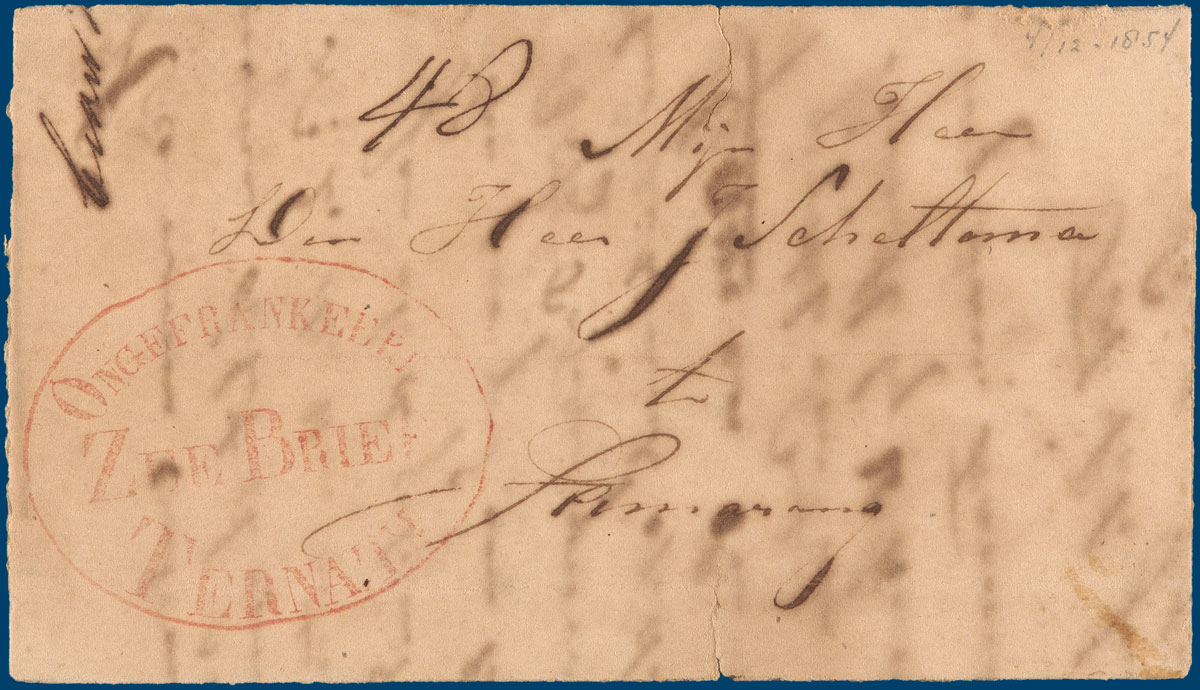 4/12-1854
48
Mijn Heer
Den Heer J Scheltema
t
Semarang
ONGEFRANKEERD
ZEE BRIEF
TERNATE